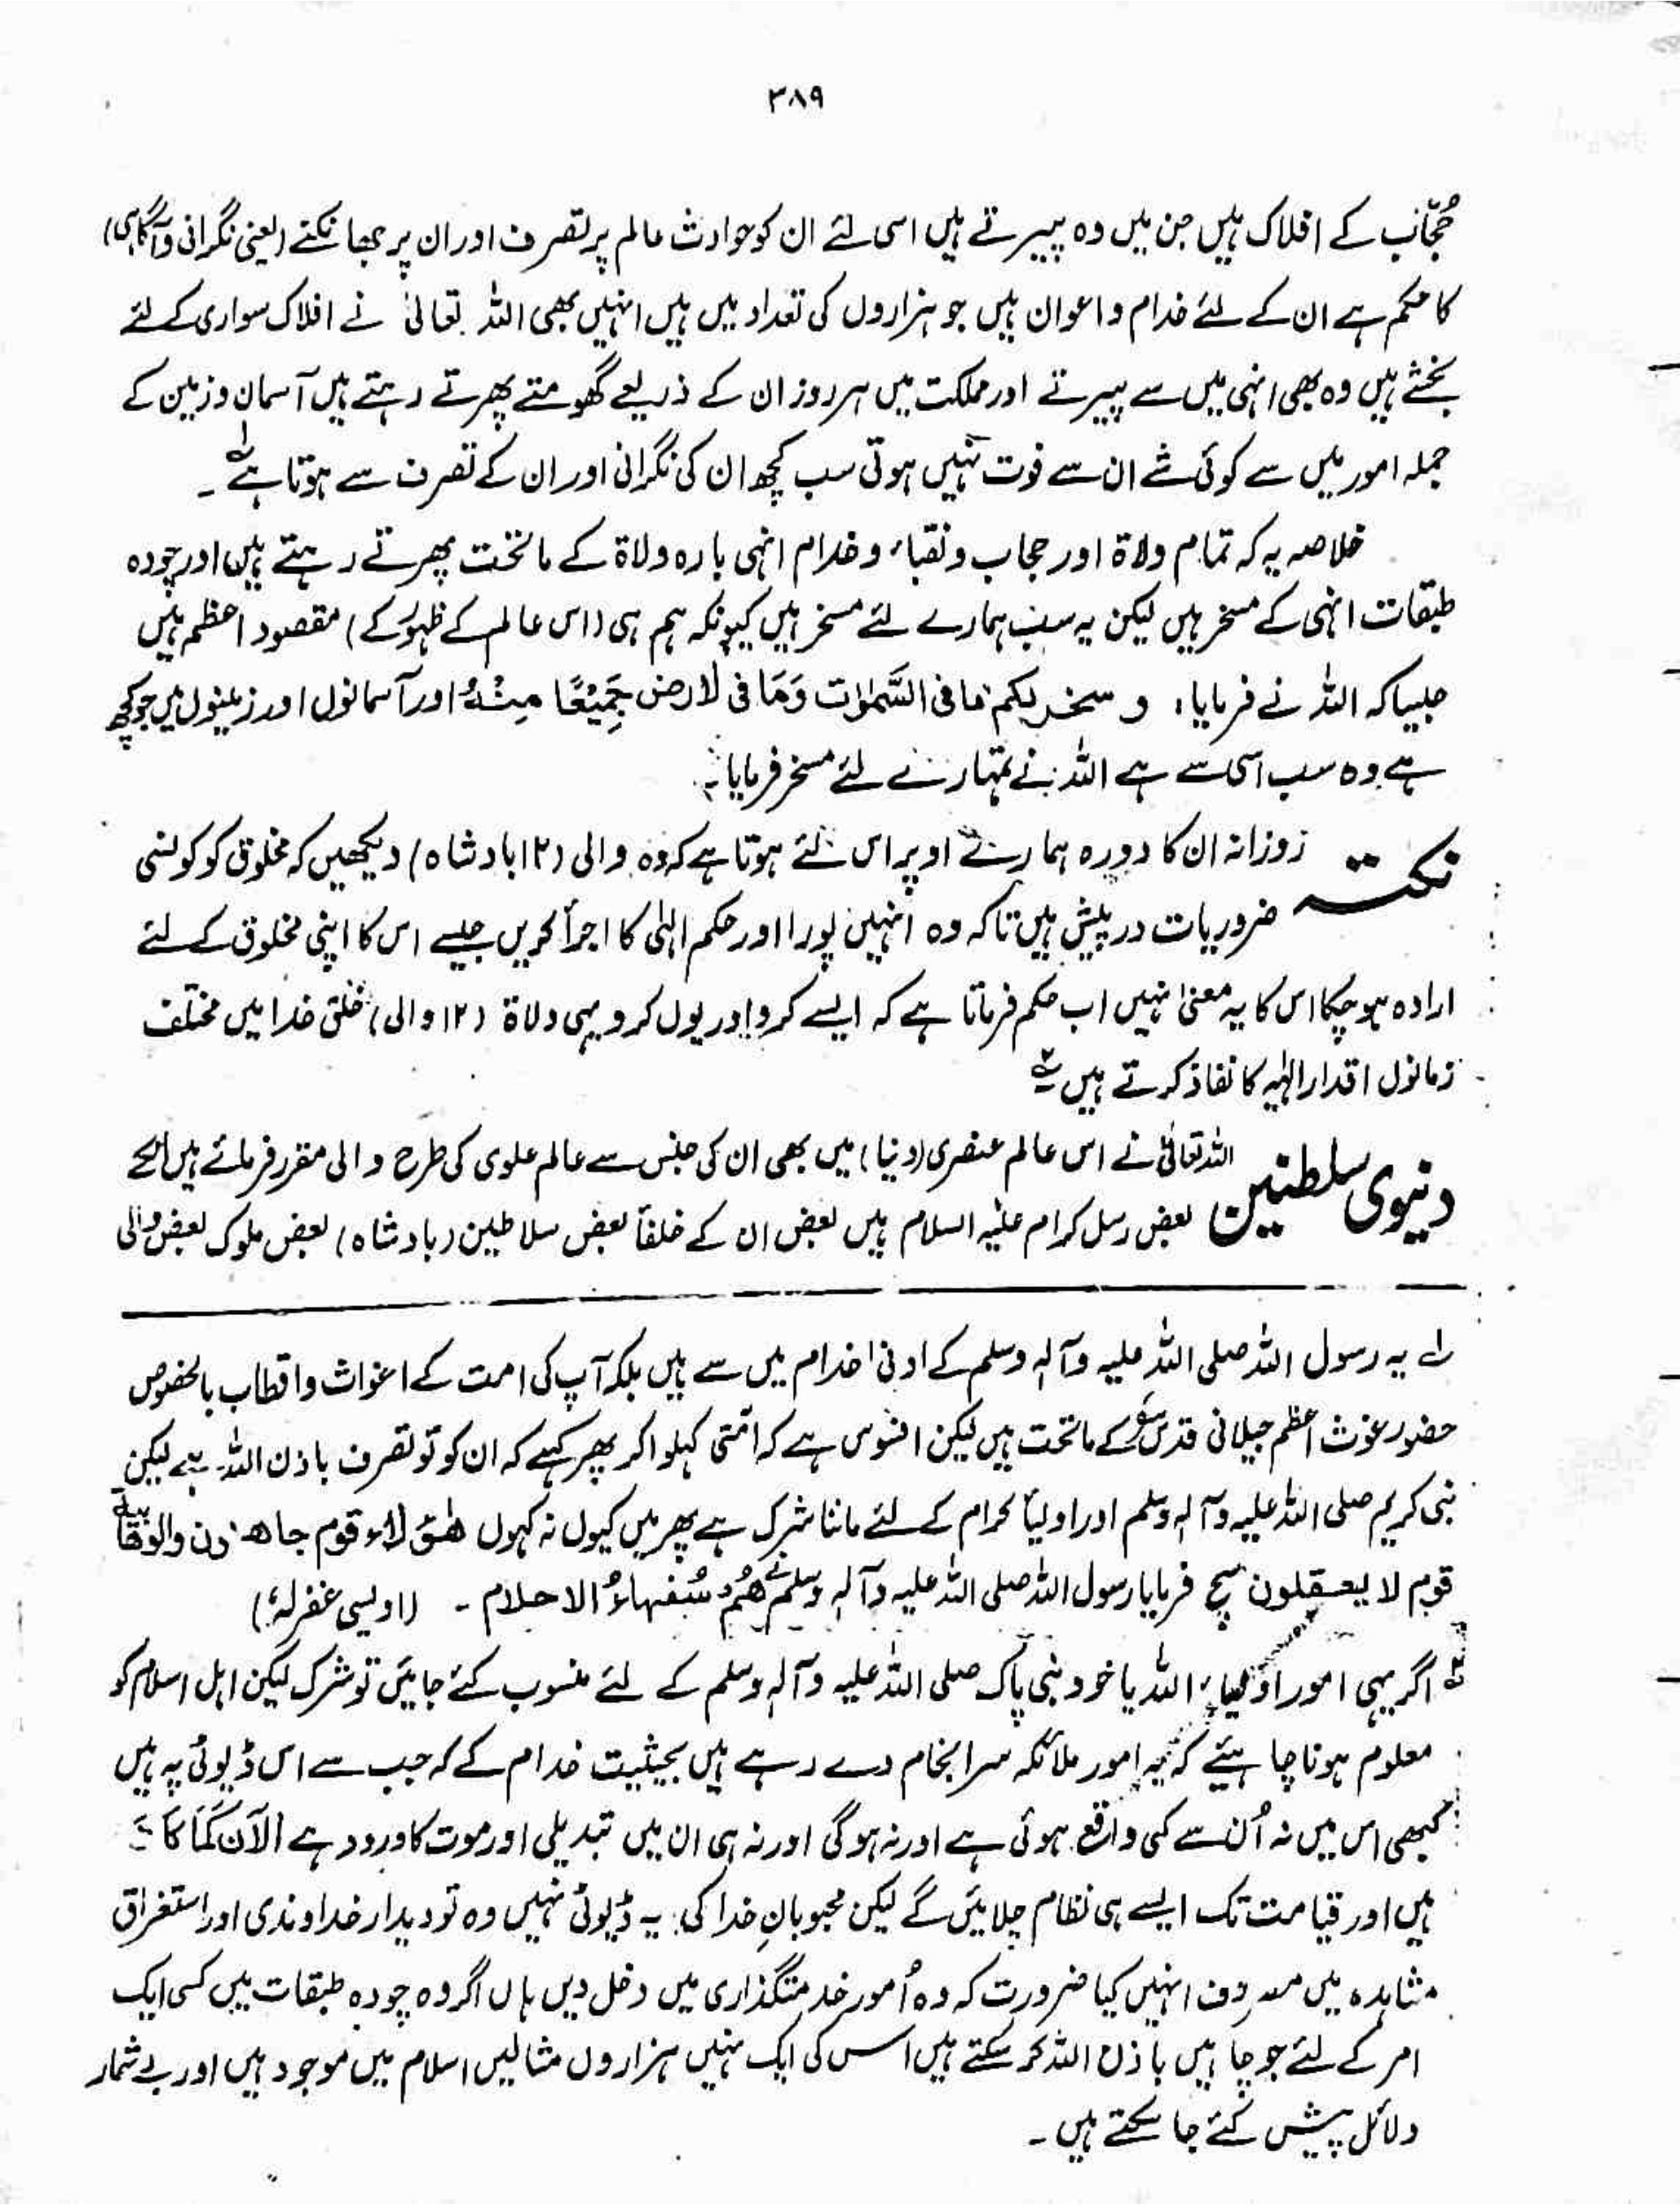 ۳۸۹
حُجّاب کے افلاک ہیں جن میں وہ پیرتے ہیں اسی لئے ان کو حوادث عالم پر تصرف اور ان پر جھانکنے (یعنی نگرانی و آگاہی)
کا حکم ہے ان کے لئے خدام و اعوان ہیں جو ہزاروں کی تعداد میں ہیں انہیں بھی اللہ تعالیٰ نے افلاک سواری کے لئے
بخشے ہیں وہ بھی انہی میں سے پیرتے اور مملکت میں ہر روز ان کے ذریعے گھومتے پھرتے رہتے ہیں آسمان و زمین کے
جملہ امور میں سے کوئی شے ان سے فوت نہیں ہوتی سب کچھ ان کی نگرانی اور ان کے تصرف سے ہوتا ہے ۱؎ ۔
خلاصہ یہ کہ تمام ولاۃ اور حجاب و نقباء و خدام انہی بارہ ولاۃ کے ماتحت پھرتے رہتے ہیں اور چودہ
طبقات انہی کے مسخر ہیں لیکن یہ سب ہمارے لئے مسخر ہیں کیونکہ ہم ہی (اس عالم کے ظہور کے) مقصود اعظم ہیں
جیسا کہ اللہ نے فرمایا، و سخر لکم ما فی السَّمٰوٰات وَمَا فی لارض جَمِیْعًا مِنْهُ اور آسمانوں اور زمینوں میں جو کچھ
ہے وہ سب اسی سے ہے اللہ نے تمہارے لئے مسخر فرمایا ۔
نکتہ روزانہ ان کا دورہ ہمارے اوپر اس لئے ہوتا ہے کہ وہ والی (۱۲ بادشاہ) دیکھیں کہ مخلوق کو کونسی
ضروریات درپیش ہیں تاکہ وہ انہیں پورا اور حکم الہٰی کا اجرأ کریں جیسے اس کا اپنی مخلوق کے لئے
ارادہ ہو چکا اس کا یہ معنیٰ نہیں اب حکم فرماتا ہے کہ ایسے کرو اور یوں کرو یہی ولاۃ (۱۲ والی) خلق خدا میں مختلف
زمانوں اقدار الہٰیہ کا نفاذ کرتے ہیں ۲؎
دنیوی سلطنتیں اللہ تعالیٰ نے اس عالم عنصری (دنیا) میں بھی ان کی جنس سے عالم علوی کی طرح والی مقرر فرمائے ہیں انکے
بعض رسل کرام علیہ السلام ہیں بعض ان کے خلفأ بعض سلاطین (بادشاہ) بعض ملوک بعض والی
۱؎ یہ رسول اللہ صلی اللہ علیہ وآلہٖ وسلم کے ادنیٰ خدام میں سے ہیں بلکہ آپ کی امت کے اغواث و اقطاب بالخصوص
حضور غوث اعظم جیلانی قدس سرہ کے ماتحت ہیں لیکن افسوس ہے کہ اُمتی کہلوا کر پھر کہے کہ ان کو تو تصرف باذن اللہ ہے لیکن
نبی کریم صلی اللہ علیہ وآلہٖ وسلم اور اولیأ کرام کے لئے ماننا شرک ہے پھر میں کیوں نہ کہوں ھٰؤلاء قوم جاھدون
قوم لا یعقلون سچ فرمایا رسول اللہ صلی اللہ علیہ وآلہٖ وسلم نے ھُمْ سُفَہَاءُ الاحلام ۔ (اویسی غفرلہٗ)
۲؎ اگر یہی امور اولیاء اللہ یا خود نبی پاک صلی اللہ علیہ وآلہٖ وسلم کے لئے منسوب کئے جائیں تو شرک لیکن اہل اسلام کو
معلوم ہونا چاہیئے کہ یہ امور ملائکہ سرانجام دے رہے ہیں بحیثیت خدام کے کہ جب سے اس ڈیوٹی پہ ہیں
کبھی اس میں نہ اُن سے کمی واقع ہوئی ہے اور نہ ہوگی اور نہ ہی ان میں تبدیلی اور موت کا ورود ہے الآن کَمَا کَانَ
ہیں اور قیامت تک ایسے ہی نظام چلائیں گے لیکن محبوبانِ خدا کی یہ ڈیوٹی نہیں وہ تو دیدار خداوندی اور استغراق
مشاہدہ میں مصروف انہیں کیا ضرورت کہ وہ اُمور خدمتگذاری میں دخل دیں ہاں اگر وہ چودہ طبقات میں کسی ایک
امر کے لئے جو چاہیں باذن اللہ کر سکتے ہیں اس کی ایک نہیں ہزاروں مثالیں اسلام میں موجود ہیں اور بے شمار
دلائل پیش کئے جا سکتے ہیں ۔